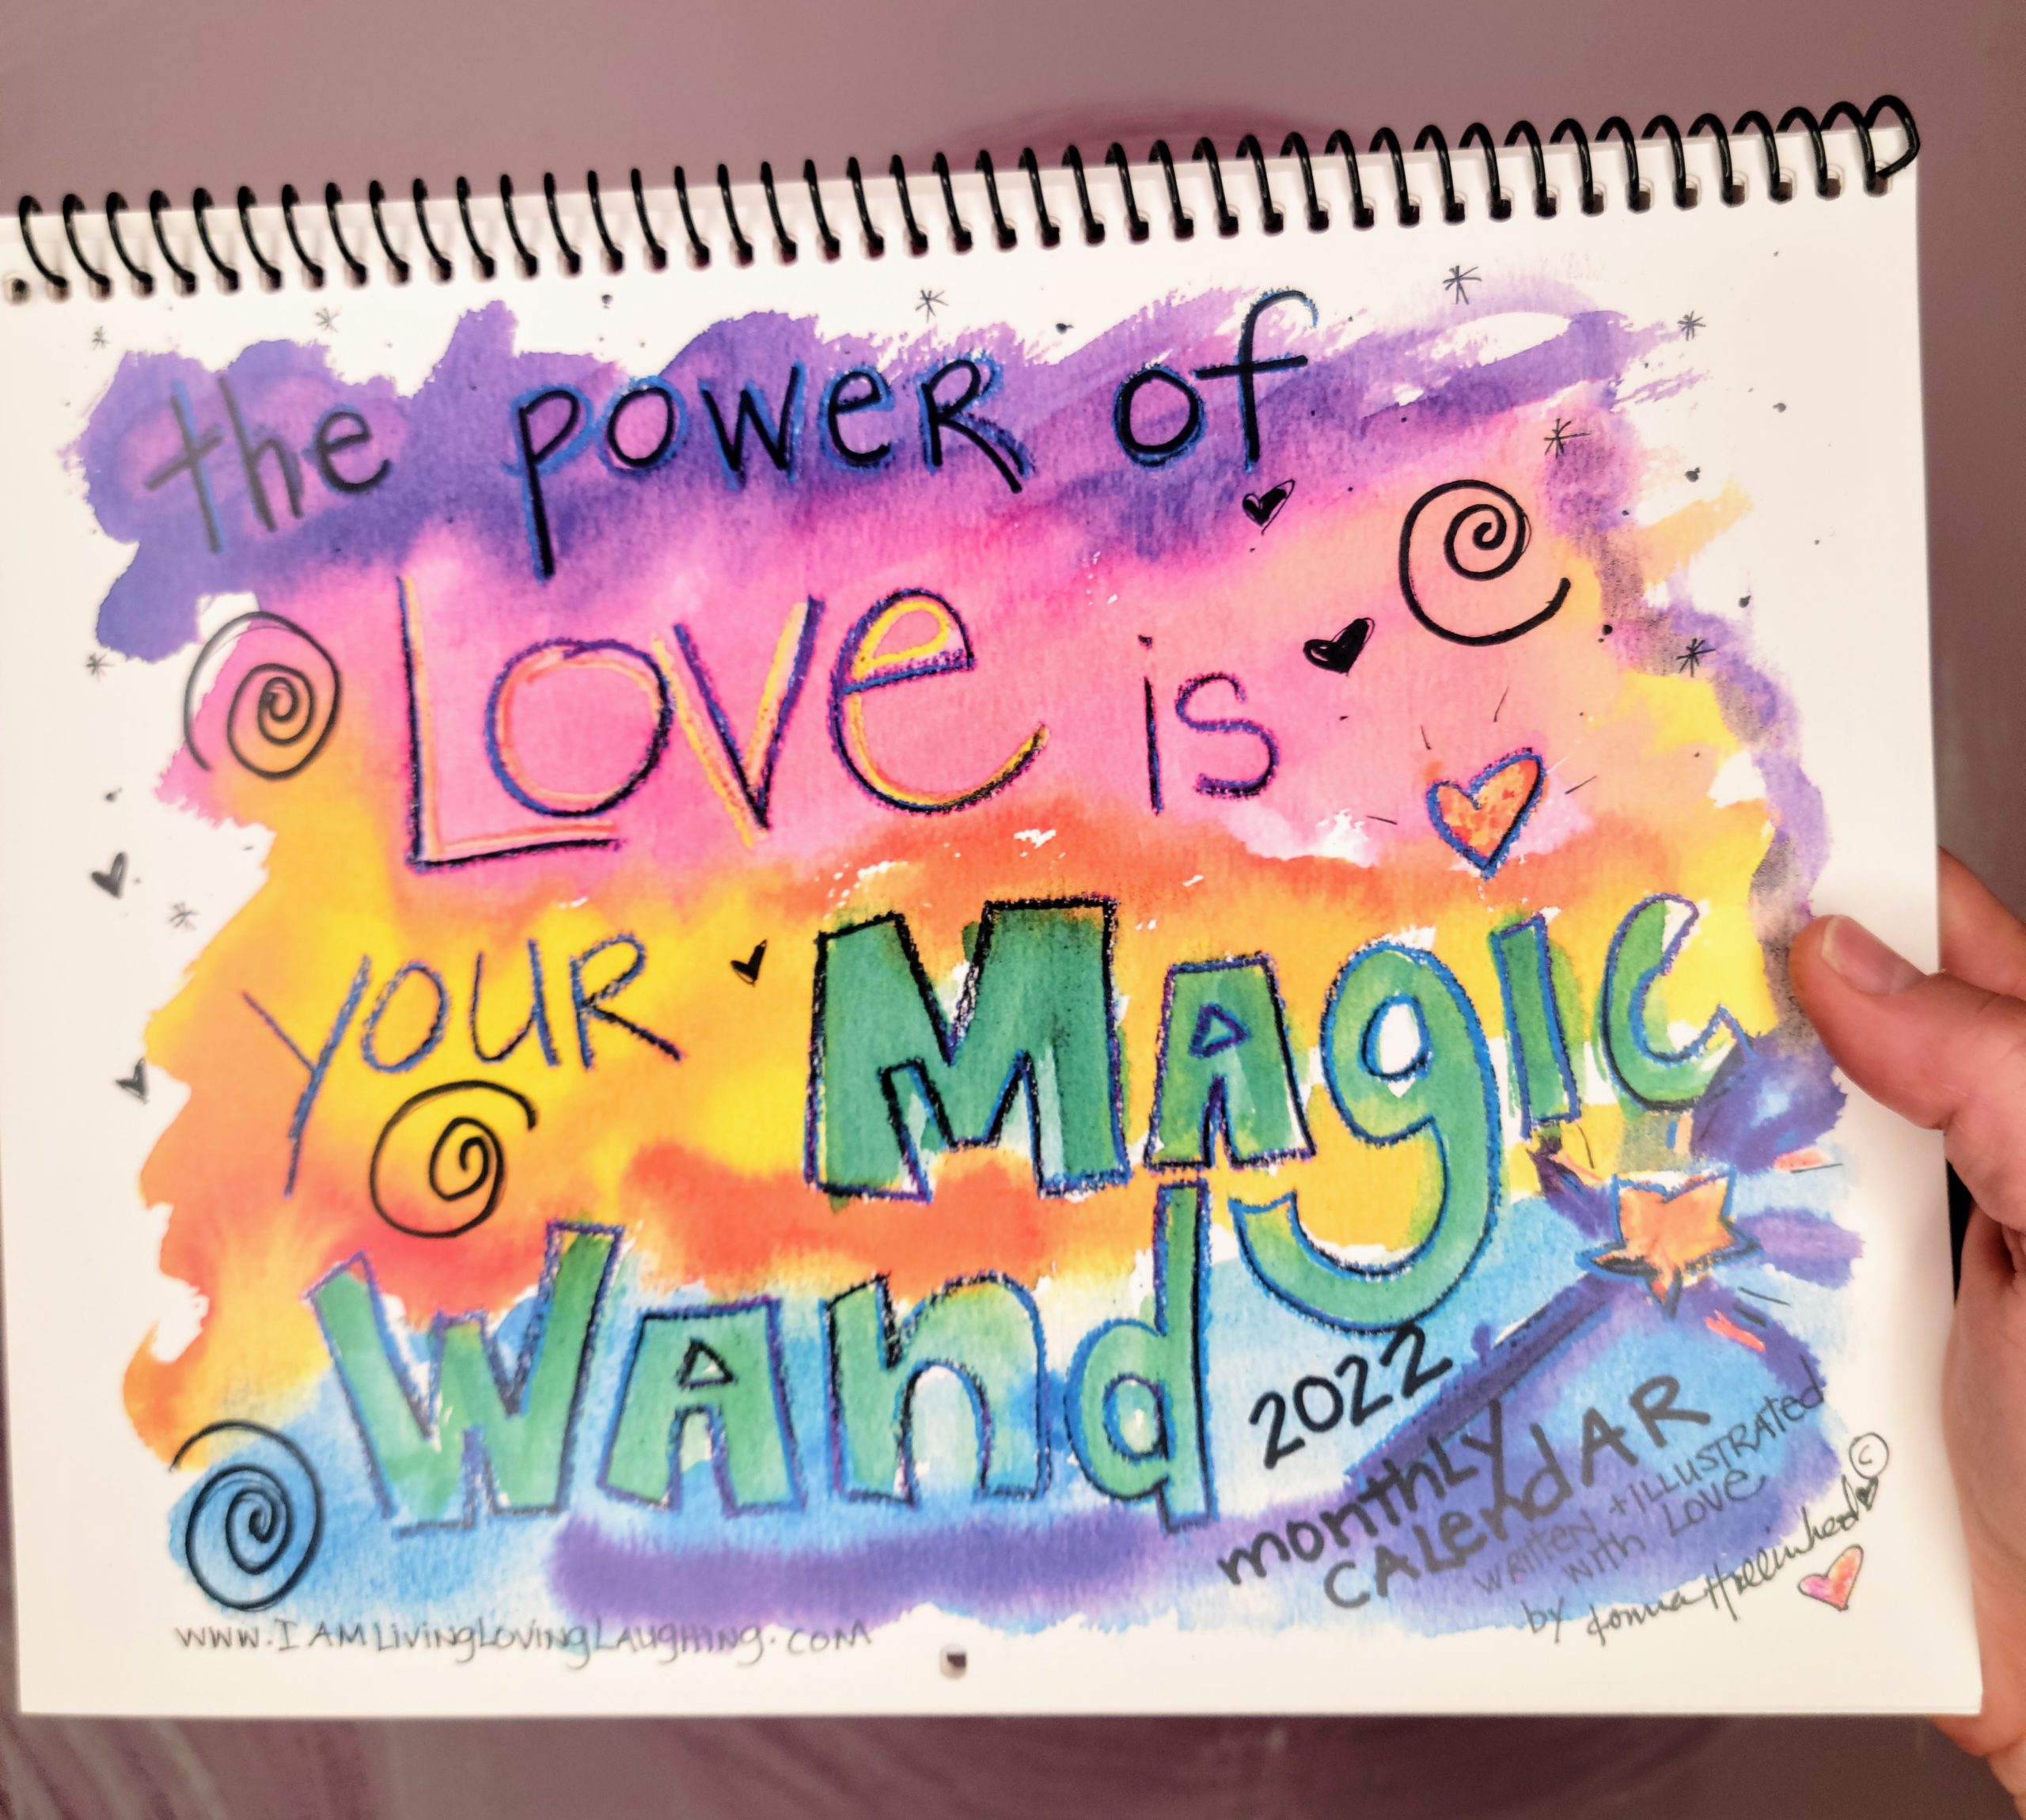 the power of
Love is
your Magic
Wand
2022
monthly
CALendAR
written + ILLUSTRATed
with Love
by donna Hollinshead
©
www.IAMLivingLovingLaughing.com